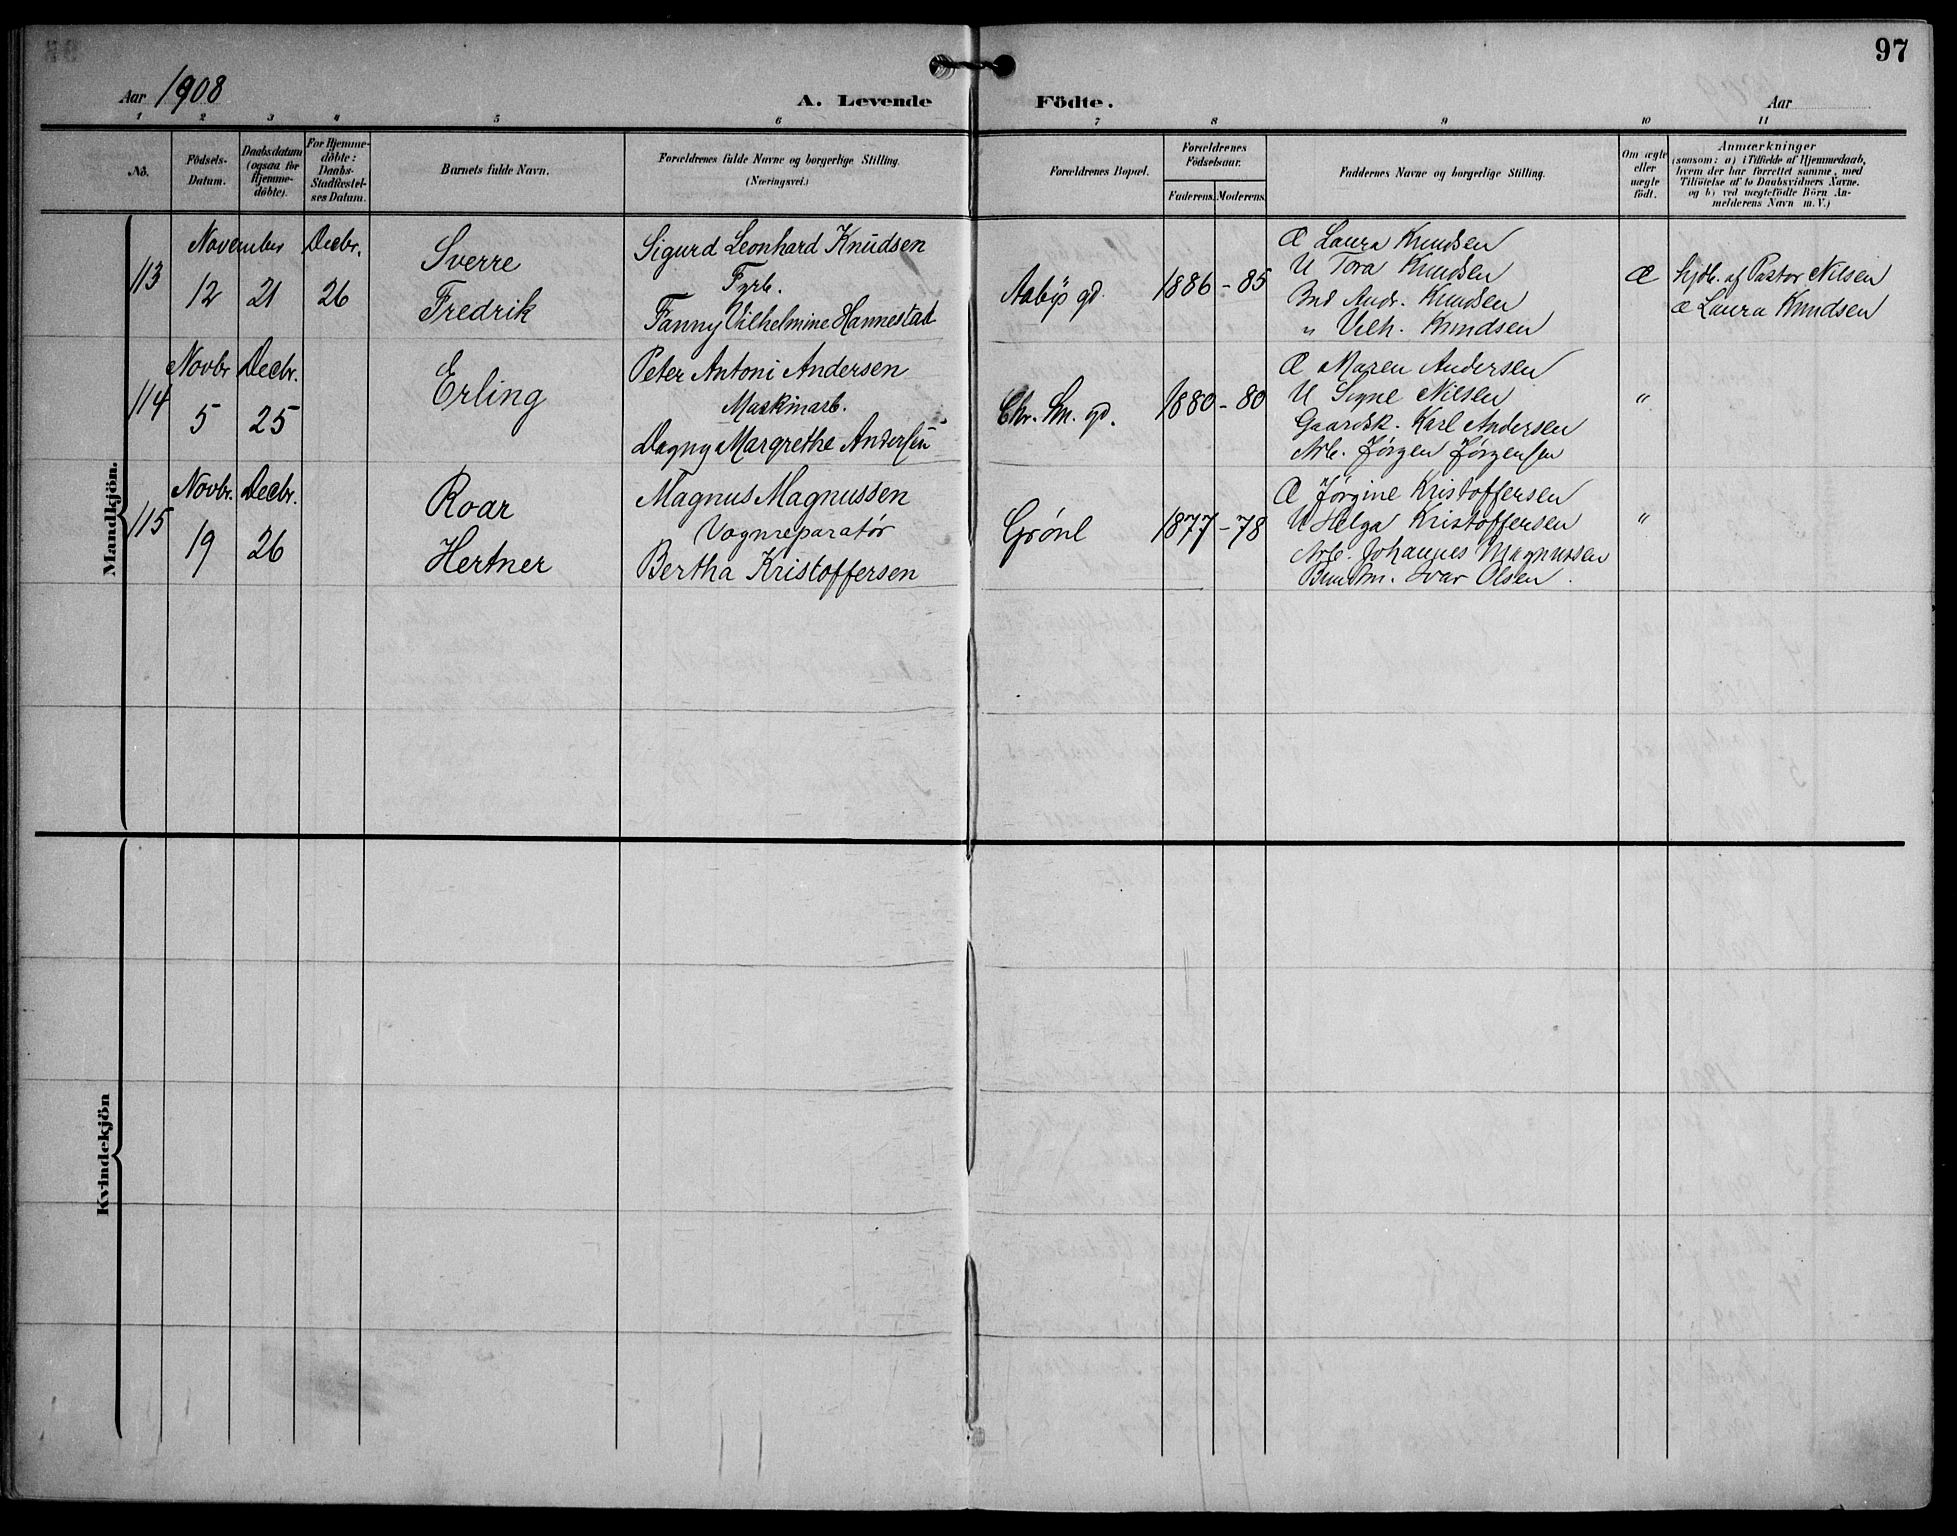 97
Aar 1908
A. Levende Födte.
Aar
1 2 3 4 5 6 7 8 9 10 11
No.
Födsels-
Datum.
Daabsdatum
(ogsaa for
Hjemme-
döbte).
For Hjemme-
döbte:
Daabs-
Stadfæstel-
ses Datum.
Barnets fulde Navn.
Forældrenes fulde Navne og borgerlige Stilling.
(Næringsvei.)
Forældrenes Bopæl.
Forældrenes
Födselsaar.
Faderens. Moderens.
Faddernes Navne og borgerlige Stilling.
Om ægte
eller
uægte
födt.
Anmærkninger
(saasom: a) i Tilfælde af Hjemmedaab,
hvem der har forrettet samme, med
Tilföielse af to Daabsvidners Navne.
og b) ved uægtefödte Börn An-
melderens Navn m. V.)
Mandkjön.
113
November Decbr.
12 21 26
Sverre
Fredrik
Sigurd Leonhard Knudsen
Fyrb.
Fanny Vilhelmine Hannestad
Aabÿ gd.
1886 - 85
Æ Laura Knudsen
U Tora Knudsen
Bud Andr. Knudsen
" Vilh. Knudsen
Æ
hjdb. af Pastor Nilsen
Æ Laura Knudsen
114
Novbr. Decbr.
5 25
Erling
Peter Antoni Andersen
Maskinarb.
Dagny Margrethe Andersen
Chr. Sm. gd.
1880 - 80
Æ Maren Andersen
U Signe Nilsen
Gaardsk. Karl Andersen
Arb. Jørgen Jørgensen
"
115
Novbr. Decbr.
19 26
Roar
Hertner
Magnus Magnussen
Vognreparatør
Bertha Kristoffersen
Grønl
1877 - 78
Æ Jørgine Kristoffersen
U Helga Kristoffersen
Arb. Johannes Magnussen
Ivar Olsen.
"
Kvindekjön